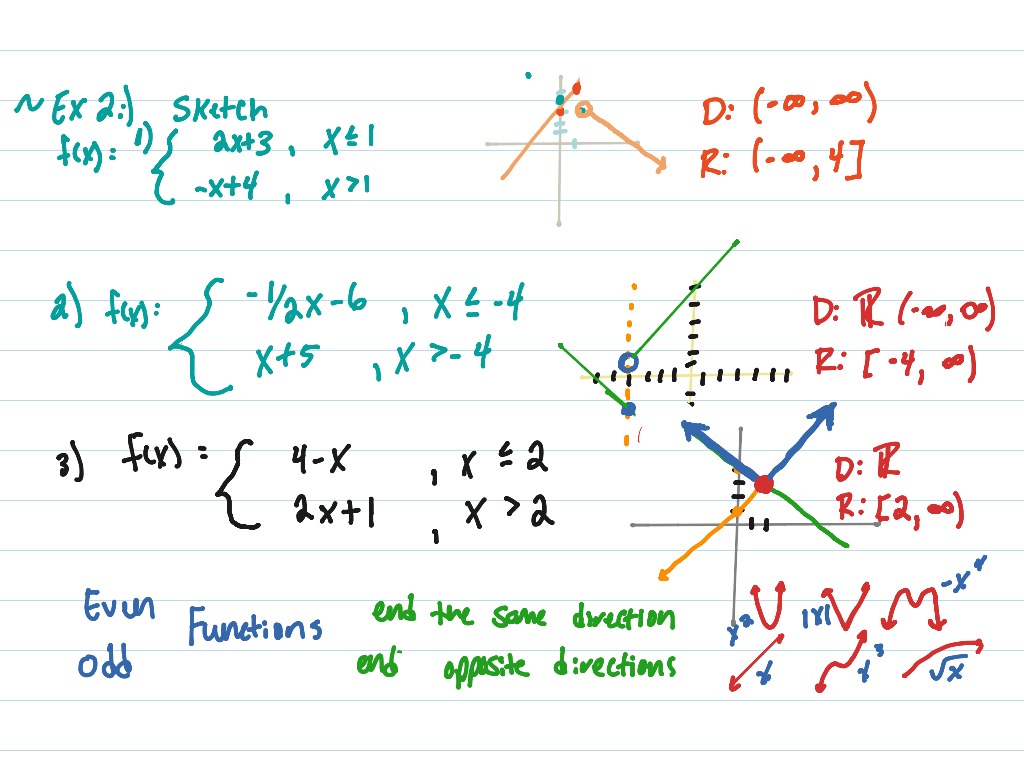 ~ Ex 2:) Sketch
f(x): 1) { 2x+3 , x ≤ 1
-x+4 , x > 1
D: (-∞, ∞)
R: (-∞, 4]
2) f(x): { -1/2x-6 , x ≤ -4
x+5 , x > -4
D: ℝ (-∞, ∞)
R: [-4, ∞)
3) f(x) = { 4-x , x ≤ 2
2x+1 , x > 2
D: ℝ
R: [2, ∞)
Even Functions end the same direction
odd end opposite directions
x² |x| -x⁴
x x³ √x